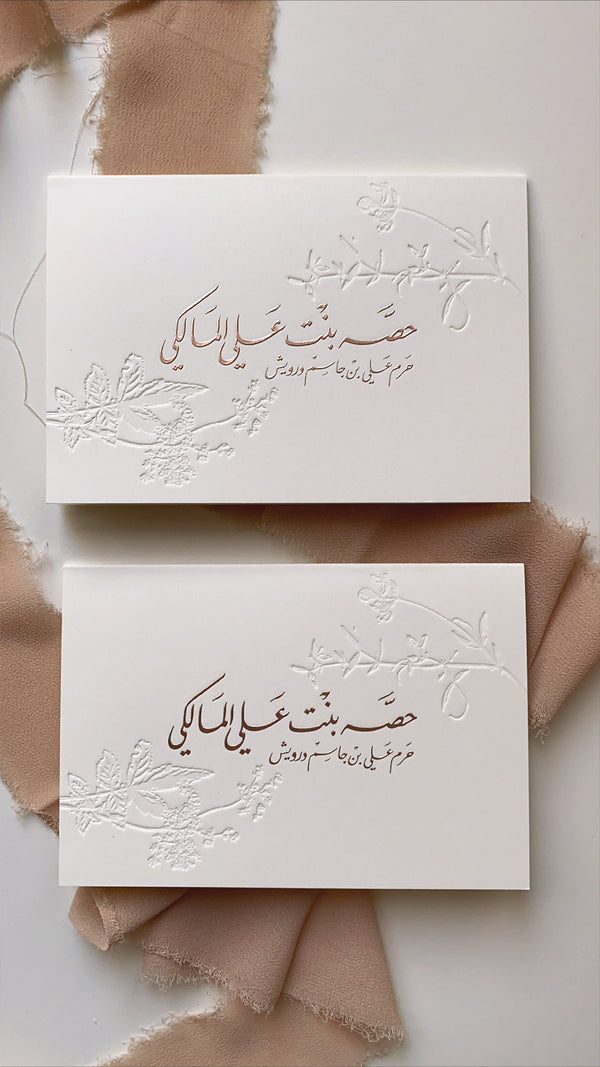 حصَّه بنْت عَلي المَالكي
حَرم عَلي بنْ جاسِمْ درويش
حصَّه بنْت عَلي المَالكي
حَرم عَلي بنْ جاسِمْ درويش